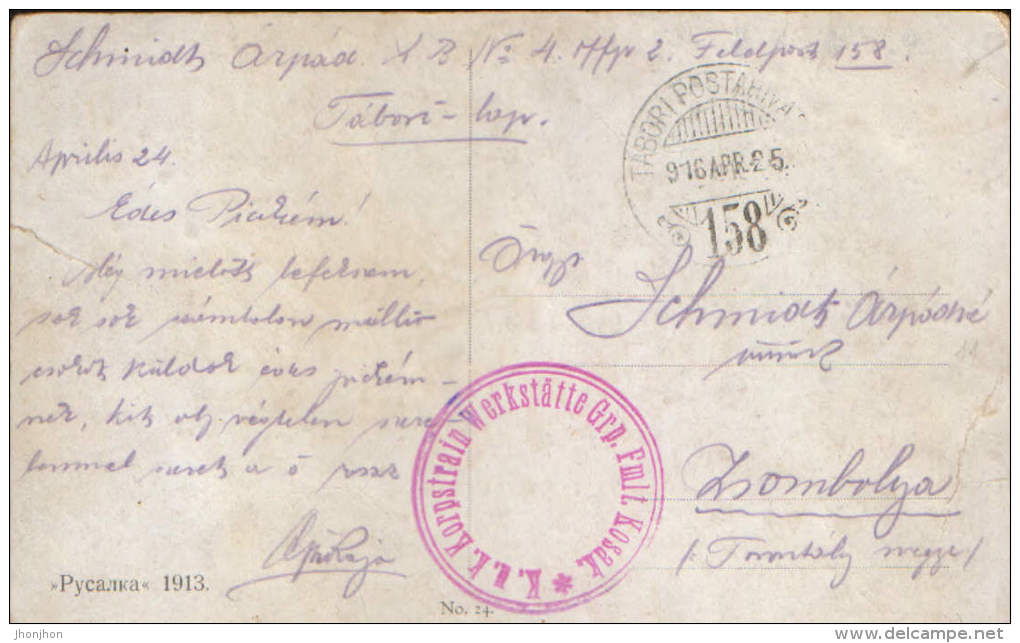 Schmidt Árpád. No 4. 2. Feldpost 158.
Tábori-lap.
TÁBORI POSTAHIVA
916 APR. 25.
158
Április 24.
Édes Piczikém!
Még mielőtt lefekszem
sok sok számtalan millió
csókot küldök édes
nek, kit oly végtelen szere
temmel szeret a ő rossz
Apukája
Schmidt Árpádné
úrnőnek
Zsombolya
/: Torontály megye /
K. u. k. Korpstrain Werkstätte Grp. Fmlt. Kosak. *
»Русалка« 1913.
No. 24.
jhonjhon
www.delcampe.net